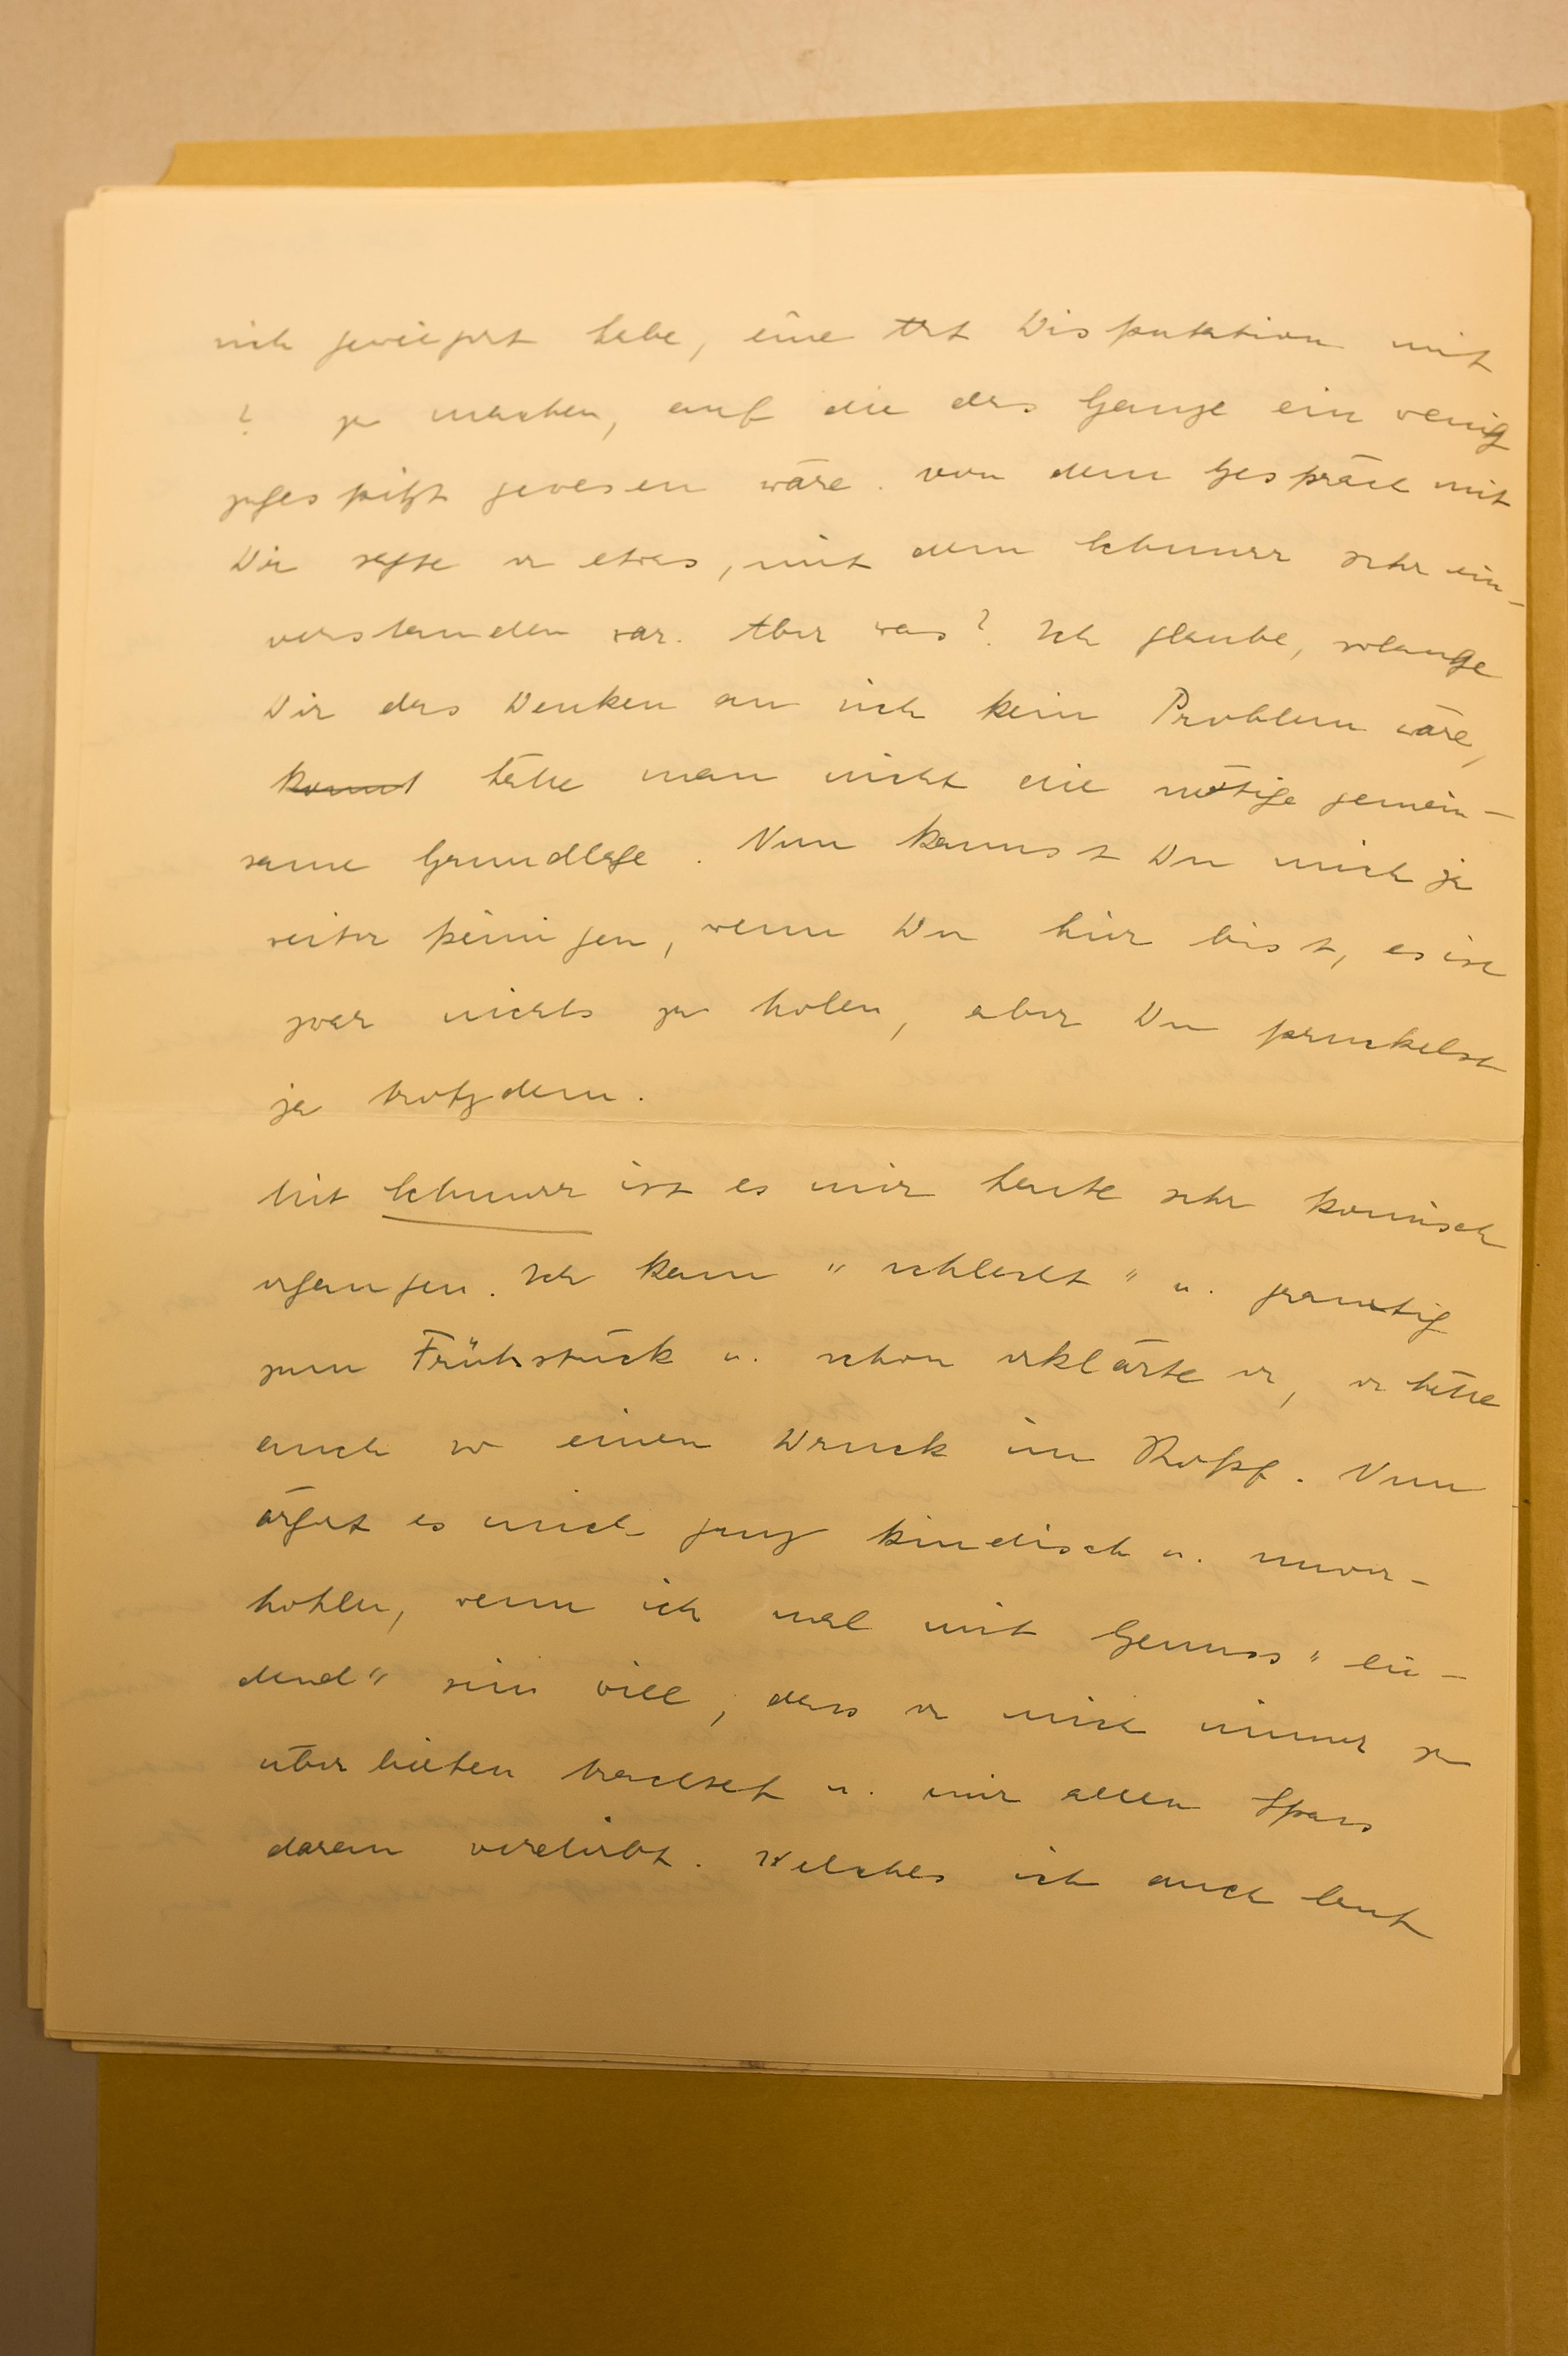 mich geweigert habe, eine Art Disputation mit
? zu machen, auf die das Ganze ein wenig
zugespitzt gewesen wäre. Von dem Gespräch mit
Dir sagte er etwas, mit dem Schnurr sehr ein-
verstanden war. Aber was? Ich glaube, solange
Dir das Denken an sich kein Problem wäre,
hätte man nicht die nötige gemein-
same Grundlage. Nun kannst Du mich ja
weiter peinigen, wenn Du hier bist, es ist
zwar nichts zu holen, aber Du prockelst
ja trotzdem.
Mit Schnurr ist es mir heute sehr komisch
ergangen. Ich kam "schlecht" u. grantig
zum Frühstück u. schon erklärte er, er hätte
auch so einen Druck im Kopf. Nun
ärgert es mich ganz kindisch u. unver-
hohlen, wenn ich mal mit Genuss "lei-
dend" sein will, dass er mich immer zu
überbieten trachtet u. mir allen Spass
daran verdirbt. Welches ich auch laut